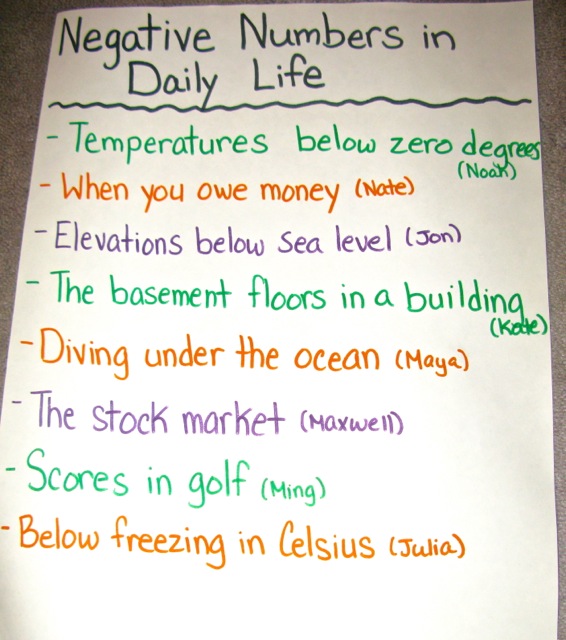 Negative Numbers in
Daily Life
- Temperatures below zero degrees
(Noah)
- When you owe money (Nate)
- Elevations below sea level (Jon)
- The basement floors in a building
(Kate)
- Diving under the ocean (Maya)
- The stock market (Maxwell)
- Scores in golf (Ming)
- Below freezing in Celsius (Julia)